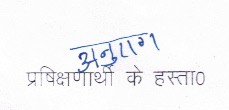 अनुराग
प्रषिक्षणार्थी के हस्ता0